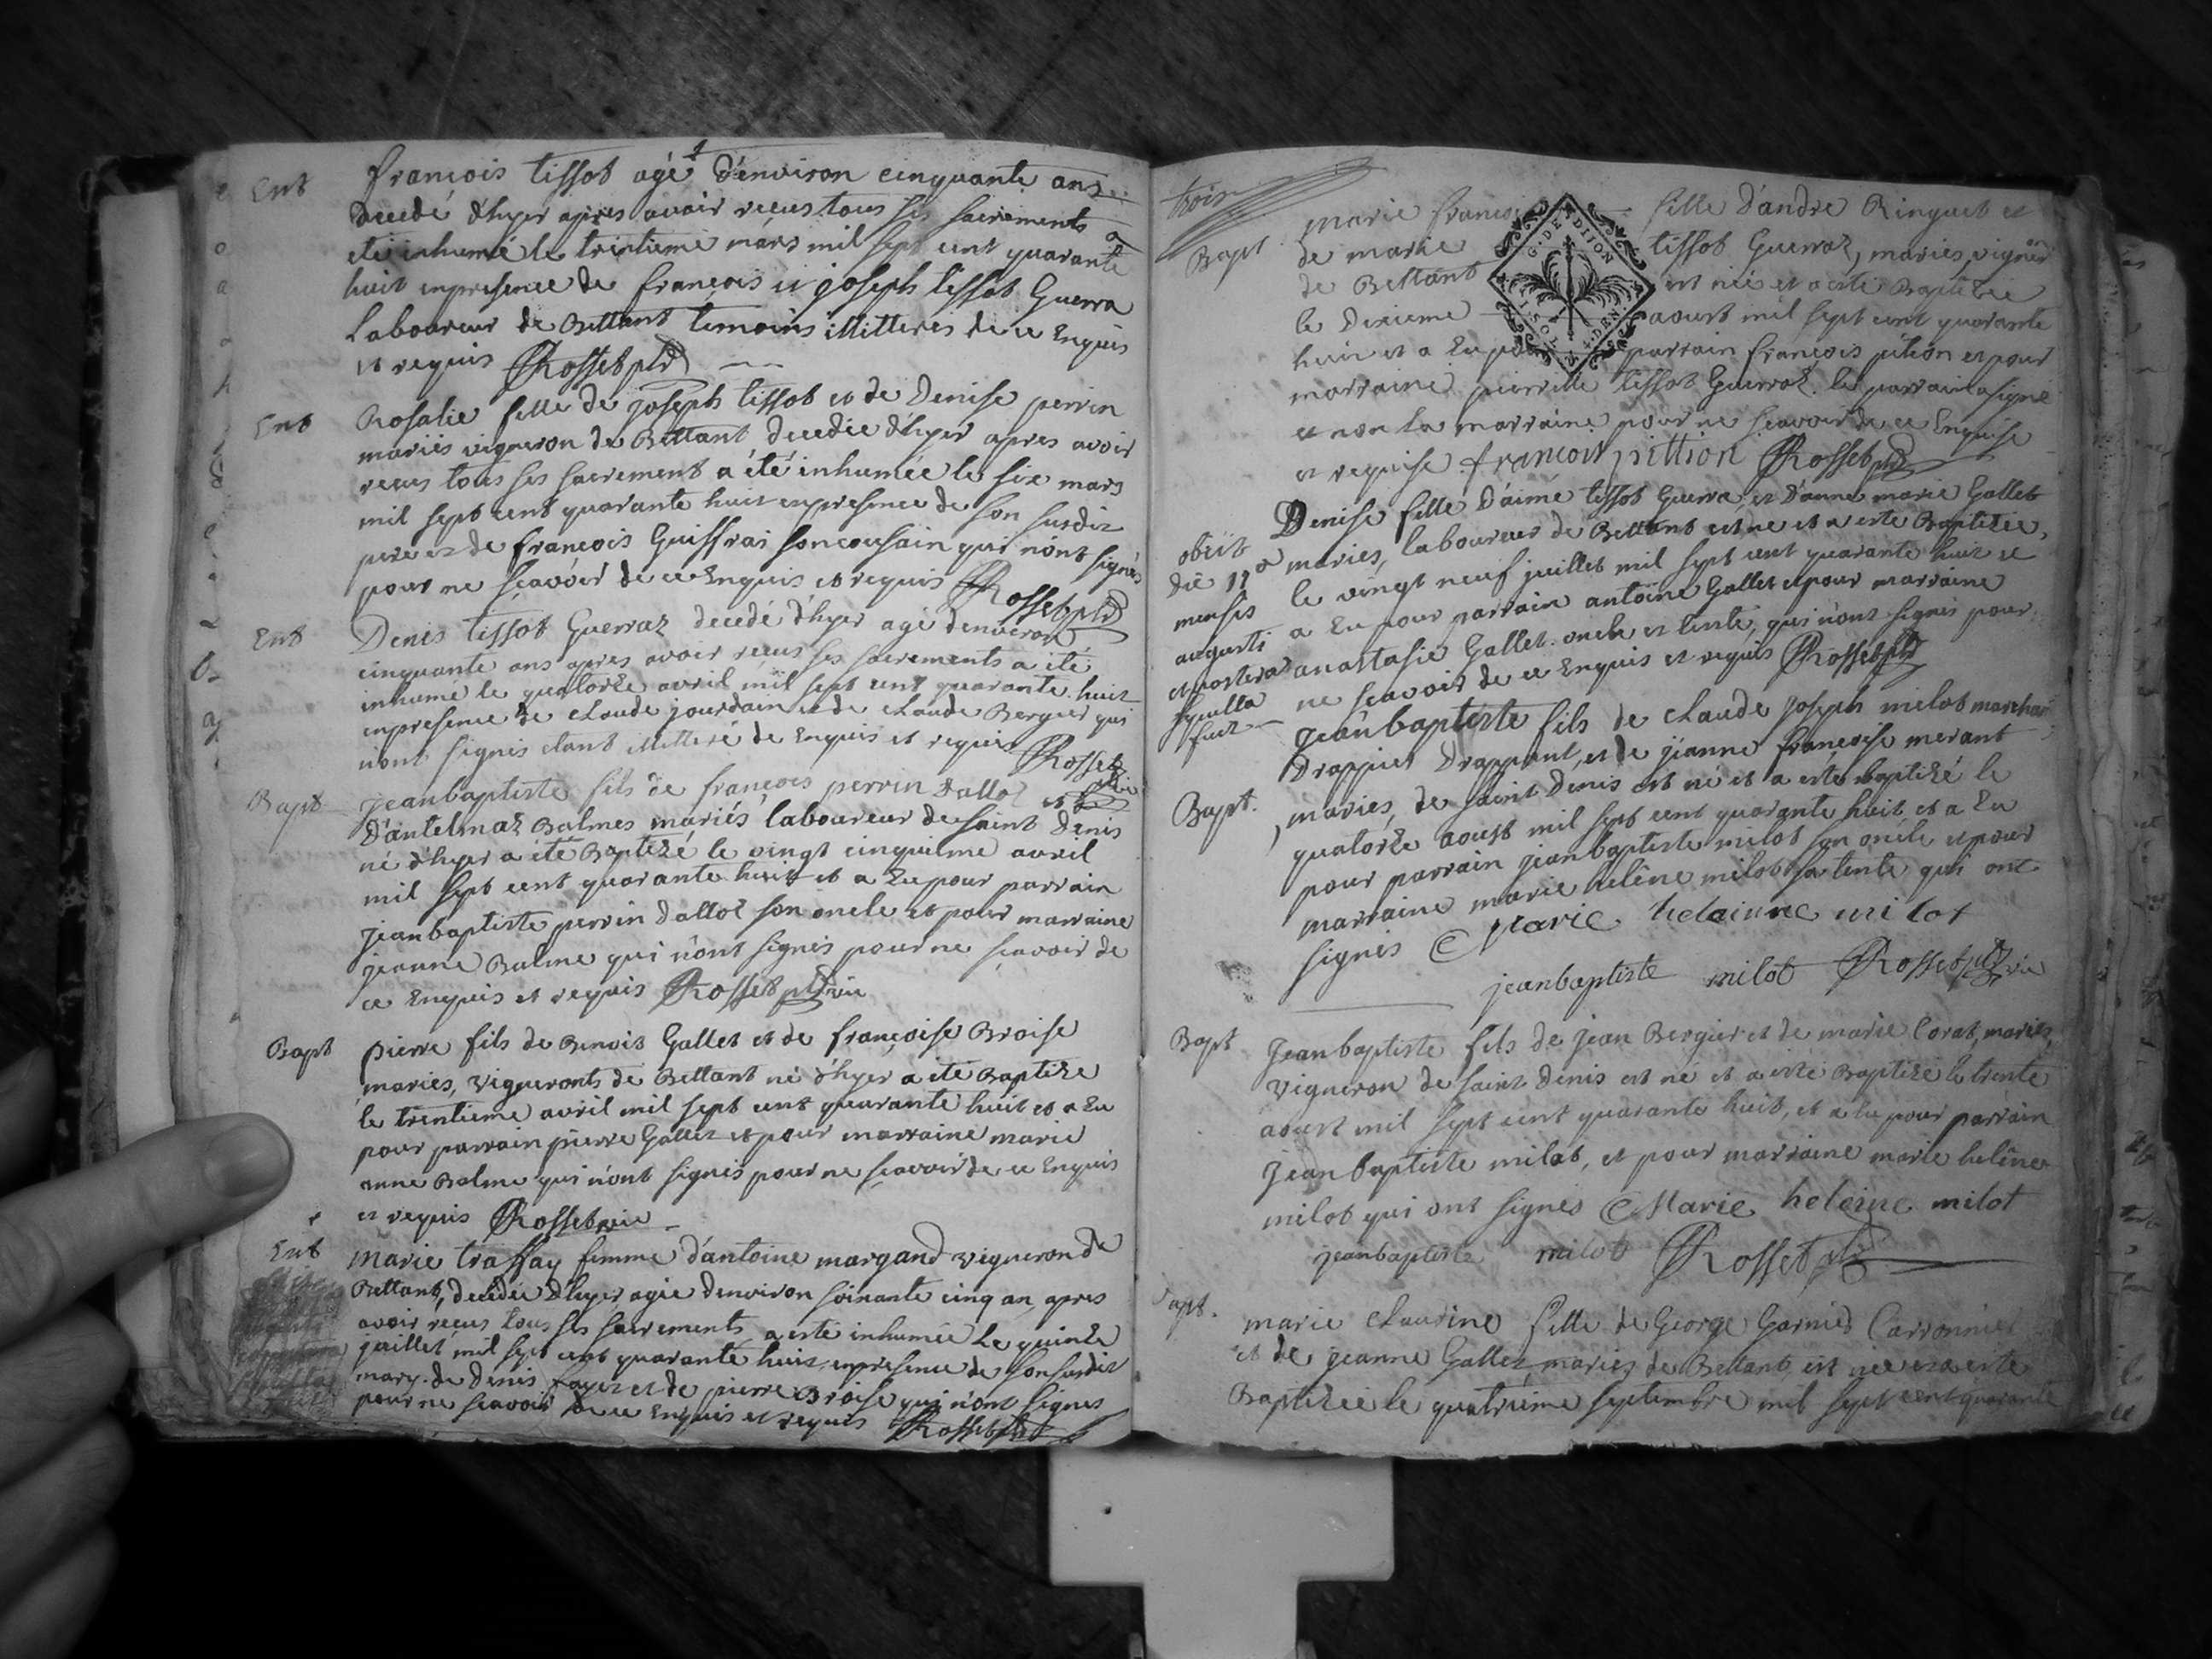 Ent
françois tissot agé d'environ cinquante ans
decedé d'hyer apres avoir reçus tous ses sacrements a
eté inhumé le trentieme mars mil sept cent quarante
huit en presence de françois et joseph tissot Guerra
Laboureur de Bettant temoins illitteres de ce Enquis
et requis Rosset ptr
Ent
Rosalie fille de joseph tissot et de Denise perrin
mariés vigneron de Bettant decedée d'hyer apres avoir
reçus tous ses sacrement a été inhumée le six mars
mil sept cent quarante huit en presence de son susdit
pere et de françois Guiffrai son cousain qui n'ont signés
pour ne sçavoir de ce Enquis et requis Rosset ptr
Ent
Denis tissot Guerraz decedé d'hyer agé d'environ
cinquante ans apres avoir reçus ses sacrements a eté
inhumé le quatorze avril mil sept cent quarante huit
en presence de claude jourdain et de claude Bergier qui
n'ont signés etant illitteré de Enquis et requis Rosset
Bapt
jeanbaptiste fils de françois perrin dalloz et
D'antelmaz Balmes mariés laboureur de saint Denis
né d'hyer a eté Baptizé le vingt cinquieme avril
mil sept cent quarante huit et a Eu pour parrain
jeanbaptiste perrin dalloz son oncle et pour marraine
jeanne Balme qui n'ont signés pour ne sçavoir de
ce Enquis et requis Rosset ptr vic
Bapt
pierre fils de Benoit Gallet et de françoise Broise
mariés, vigneronts de Bettant né d'hyer a eté Baptize
le trentieme avril mil sept cent quarante huit et a Eu
pour parrain pierre Gallet et pour marraine marie
anne Balme qui n'ont signés pour ne sçavoir de ce Enquis
et requis Rosset vic
Ent
Marie traffay femme d'antoine margand vigneron de
Bettant, decedée d'hyer agée d'environ soixante cinq an apres
avoir reçus tous ses sacrements a esté inhumée Le quinze
juillet mil sept cent quarante huit en presence de son susdit
mary. de Denis fayet et de pierre Broise qui n'ont signes
pour ne sçavoir de ce Enquis et requis Rosset ptr
trois
Bapt
marie franço fille D'andre Ringuet et
de marie tissot Guerraz, mariés, vigneron
de Bettant est née et a eté Baptizee
le Dixieme aoust mil sept cent quarante
huit et a Eu pour parrain françois pition et pour
marraine pierrette tissot Guerraz. le parrain a signé
et non la marraine pour ne sçavoir de ce Enquise
et requise. francoit pittion Rosset ptr
Denise fille D'aimé tissot Guerra, et D'anne marie Gallet
mariés, laboureur de Bettant est ne et a este Baptizée,
le vingt neuf juillet mil sept cent quarante huit et
a Eu pour parrain antoine Gallet et pour marraine
anastasie Gallet. oncle et tente, qui n'ont signés pour
ne sçavoir de ce Enquis et requis Rosset ptr
obiit
die 11a
mensis
augusti
et postera
sepulta
fuit
Bapt.
jeanbaptiste fils de claude joseph milot marchan
Drappier Drappant, et de jeanne françoise merant
, mariés, de saint Denis est né et a este baptizé le
quatorze aoust mil sept cent quarante huit et a Eu
pour parrain jeanbaptiste milot son oncle et pour
marraine marie helêne milot sa tente qui ont
signés Marie helainne milot
jeanbaptiste milot Rosset ptr vic
Bapt
Jeanbaptiste fils de jean Bergier et de marie Corat, mariés,
vigneron de saint Denis est né et a esté Baptizé le trente
aoust mil sept cent quarante huit, et a Eu pour parrain
Jeanbaptiste milot, et pour marraine marie helêne
milot qui ont signés Marie heleine milot
jeanbaptiste milot Rosset ptr
Bapt.
marie claudine fille de George Garnier Carronnier
et de jeanne Gallet mariés de Bettant est née et a esté
Baptizée le quatrieme septembre mil sept cent quarante
G. DE DIJON